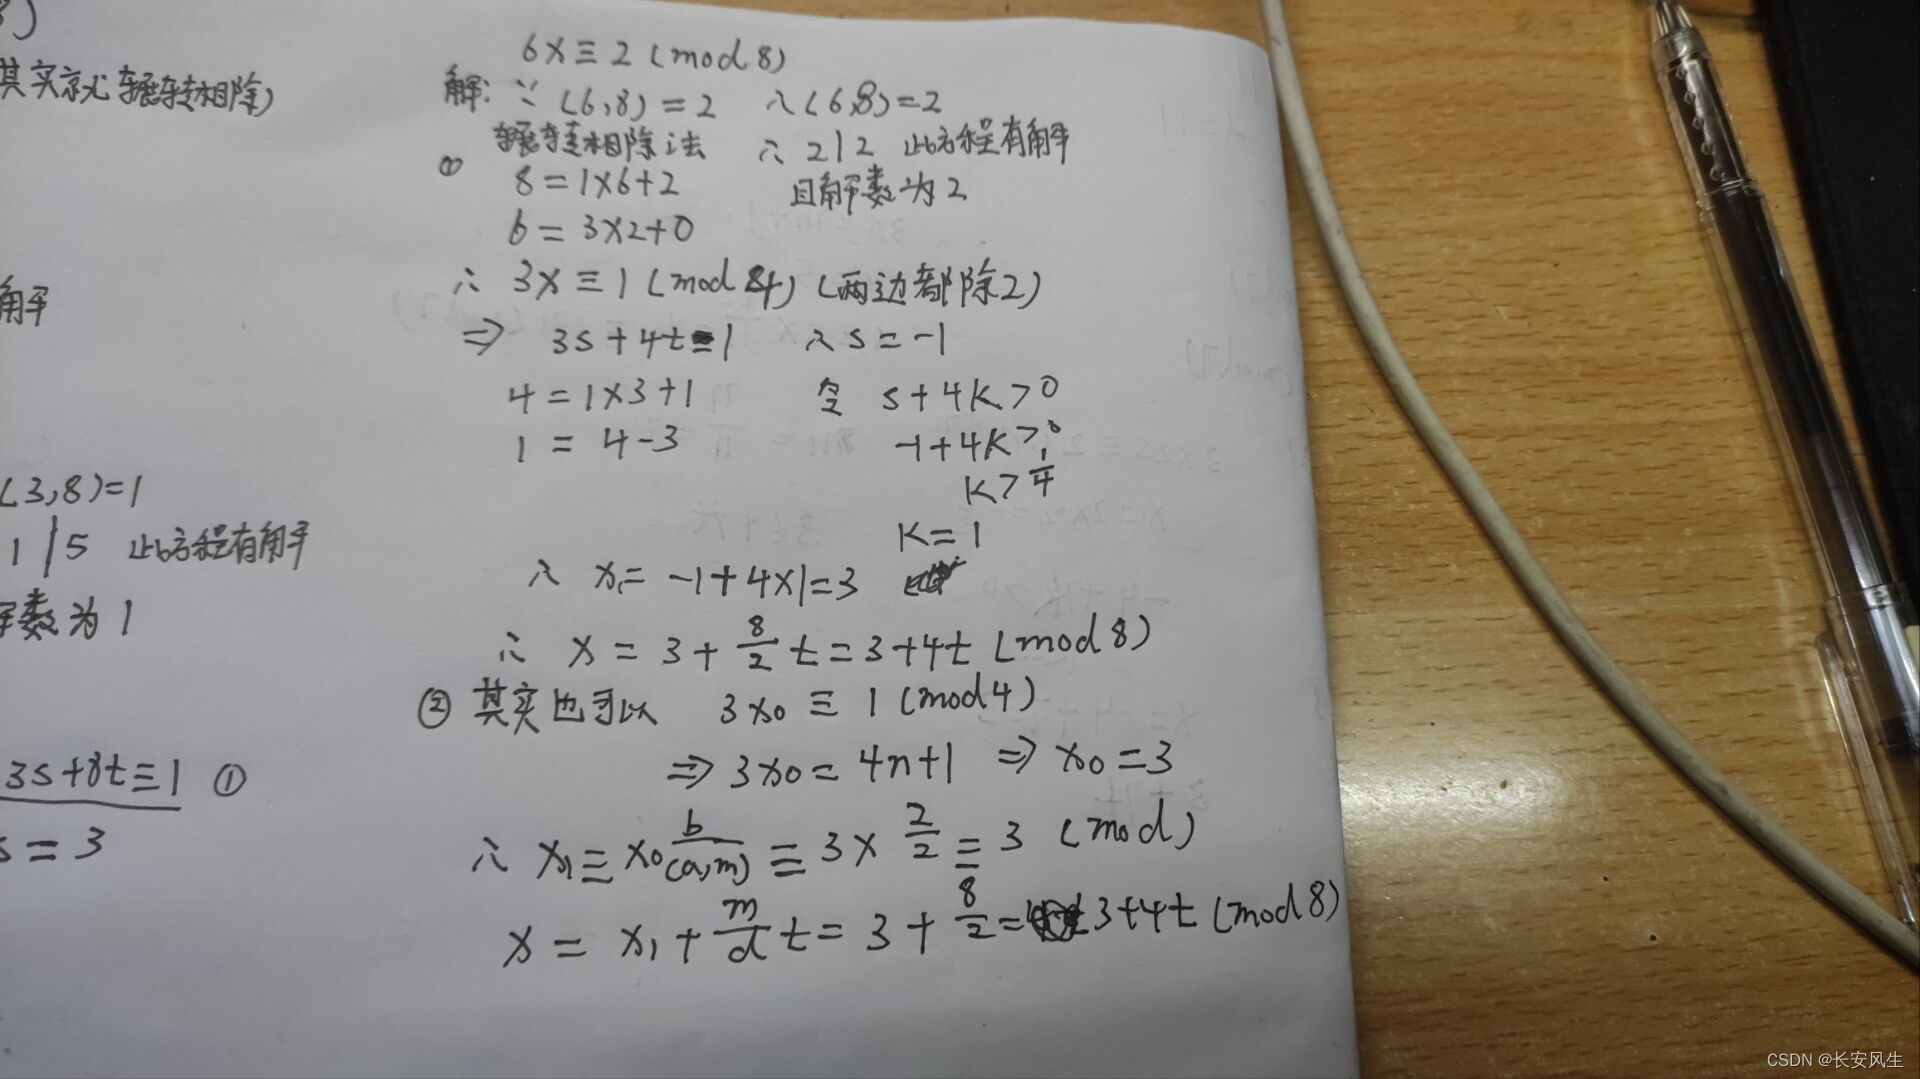 3)
其实就是辗转相除)
解
(3,8)=1
1|5 此方程有解
解数为1
3s+8t≡1 ①
s=3
6x≡2(mod 8)
解: ∵ (6,8)=2 ∴(6,8)=2
辗转相除法 ∴ 2|2 此方程有解
① 8=1×6+2 且解数为2
6=3×2+0
∴ 3x≡1(mod 4)(两边都除2)
⇒ 3s+4t=1 ∴s=-1
4=1×3+1 令 s+4k>0
1=4-3 -1+4k>0
k>1/4
k=1
∴ x₁=-1+4×1=3
∴ x=3+8/2 t=3+4t (mod 8)
② 其实也可以 3x₀≡1(mod 4)
⇒3x₀=4n+1 ⇒x₀=3
∴ x₁≡x₀ b/(a,m) ≡3×2/2≡3 (mod)
x=x₁+m/d t=3+8/2=3+4t (mod 8)
CSDN @长安风生